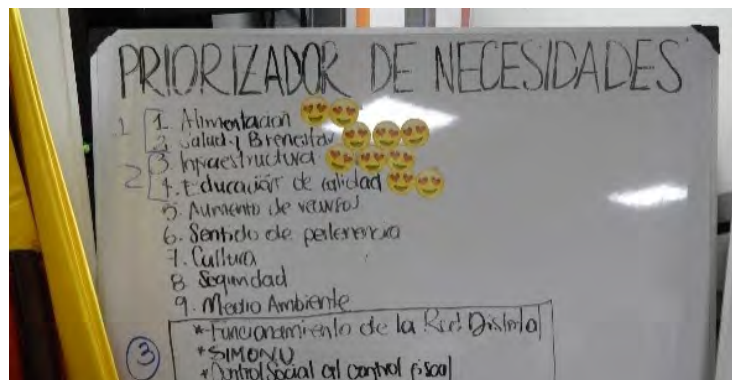 PRIORIZADOR DE NECESIDADES
1 1. Alimentacion
2. Salud y Bienestar
3. Infraestructura
2 4. Educación de calidad
5. Aumento de recursos
6. Sentido de pertenencia
7. Cultura
8. Seguridad
9. Medio Ambiente
*Funcionamiento de la Red Distrital
3 *SIMONU
*Control Social al control fiscal